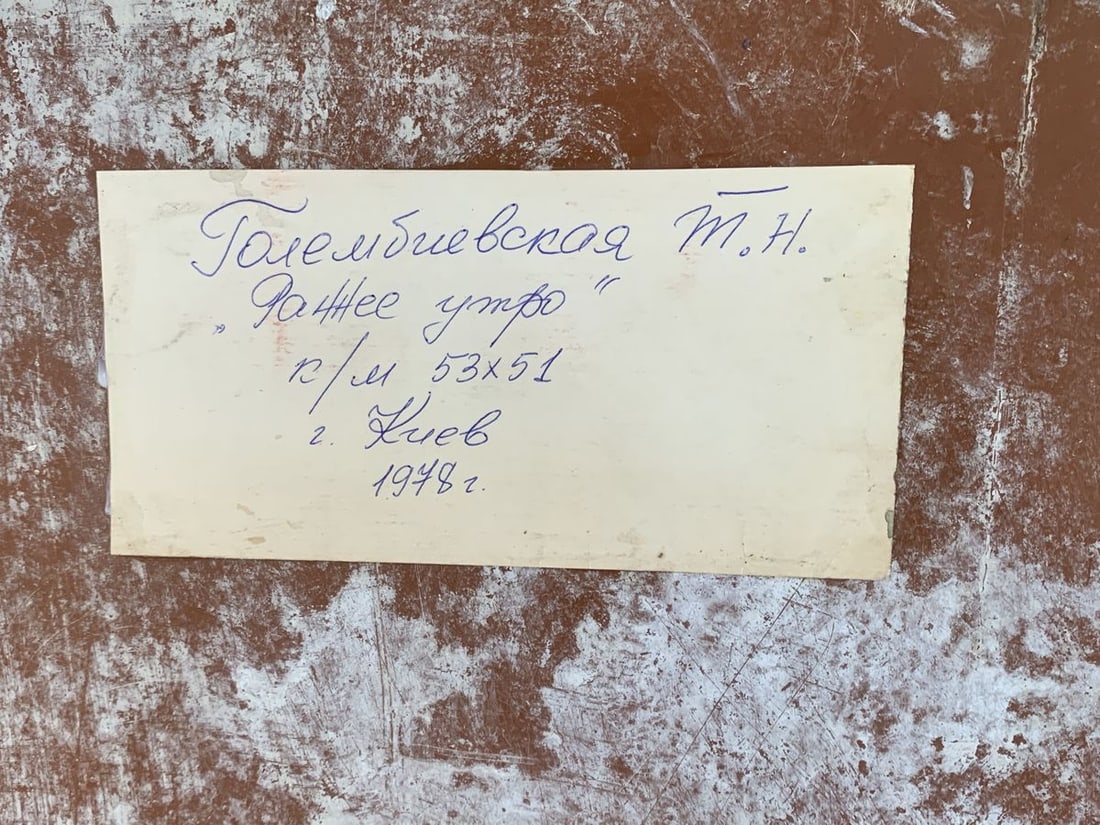 Голембиевская Т.Н.
„Раннее утро“
к/м 53х51
г. Киев
1978г.